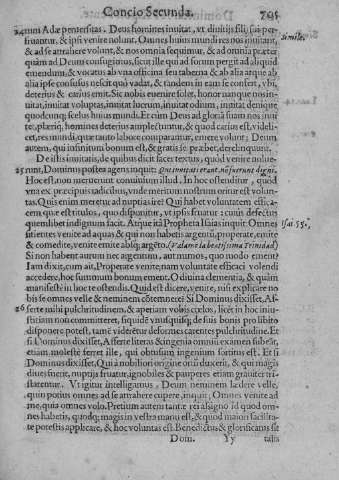 Concio Secunda. 705
24 tum Adæ peruersitas. Deus homines inuitat, vt diuitijs illi, sui perfruantur,
& ipsi venire nolunt. Omnes huius mundi res nos inuitant,
& ad se attrahere volunt, & nos omnia sequimur, & ad omnia præter
quàm ad Deum confugimus, sicut ille qui ad forum pergit ad aliquid
emendum, & vocatus ab vna officina seu taberna & ab alia atque ab
alia ipse confusus nescit quò vadat, & tandem in eam se confert, vbi,
deterius & carius emit. Sic nobis euenire solet, honor namque nos inuitat,
inuitat voluptas, inuitat lucrum, inuitat odium, inuitat denique
quodcunq; scelus huius mundi. Et cùm Deus ad gloriã suam nos inuitet,
plæriq; homines deterius amplectuntur, & quod carius est, videlicet,
res mundi, quæ tanto labore comparantur, emere volunt: Deum
autem, qui infinitum bonum est, & gratis se præbet, derelinquunt.
De istis inuitatis, de quibus dicit sacer textus, quòd venire noluerunt,
25 Dominus postea agens inquit: Qui inuitati erant, nõ fuerunt digni.
Hoc est, non meruerunt conuiuium illud. In hoc ostenditur, quòd
vna ex præcipuis radicibus, vnde meritum nostrum oritur est voluntas.
Quis enim meretur ad nuptias ire? Qui habet voluntatem efficacem
quæ est titulus, quo disponitur, vt ipsis fruatur: cuius defectus
quemlibet indignum facit. Atque ità Propheta Isaias inquit: Omnes
sitientes venite ad aquas & qui non habetis argentũ, properate, emite
& comedite, venite emite absq; argẽto. (Valame la beatissima Trinidad)
Si non habent aurum nec argentum, aut numos, quo modo ement?
Iam dixit, cum ait, Properate venite, nam voluntate efficaci volendi
accedere, hoc summum bonum ement. O diuina clementia, & quàm
manifestè in hoc te ostendis. Quid est dicere, venite, nisi explicare nobis
se omnes velle & neminem cõtemnere? Si Dominus dixisset, Afferte
26 mihi pulchritudinem, & aperiam vobis cœlos, licet in hoc iniustitiam
non committeret, siquidẽ vnusquisq; de suis bonis pro libito
disponere potest, tamẽ viderẽtur deformes carentes pulchritudine. Et
si Dominus dixisset, Afferte literas & ingenia omniũ examen subeãt,
etiam molestè ferret ille, qui obtusum ingenium sortitus est. Et si
Dominus dixisset, Qui à nobiliori origine ortũ duxerit, & qui magis
diues fuerit, nuptijs fruatur, ignobiles & pauperes etiam grauiter tristarentur.
Vt igitur intelligamus, Deum neminem lædere velle,
quin potius omnes ad se attrahere cupere, inquit, Omnes venite ad
me, quia omnes volo. Pretium autem tantæ rei assigno id quod omnes
habetis, quodq; magis in vestra manu est, & quod maiori facilitate
potestis applicare, & hoc voluntas est. Benedictus & glorificatus sit
Dom. Yy talis
Simile.
Isai. 55.